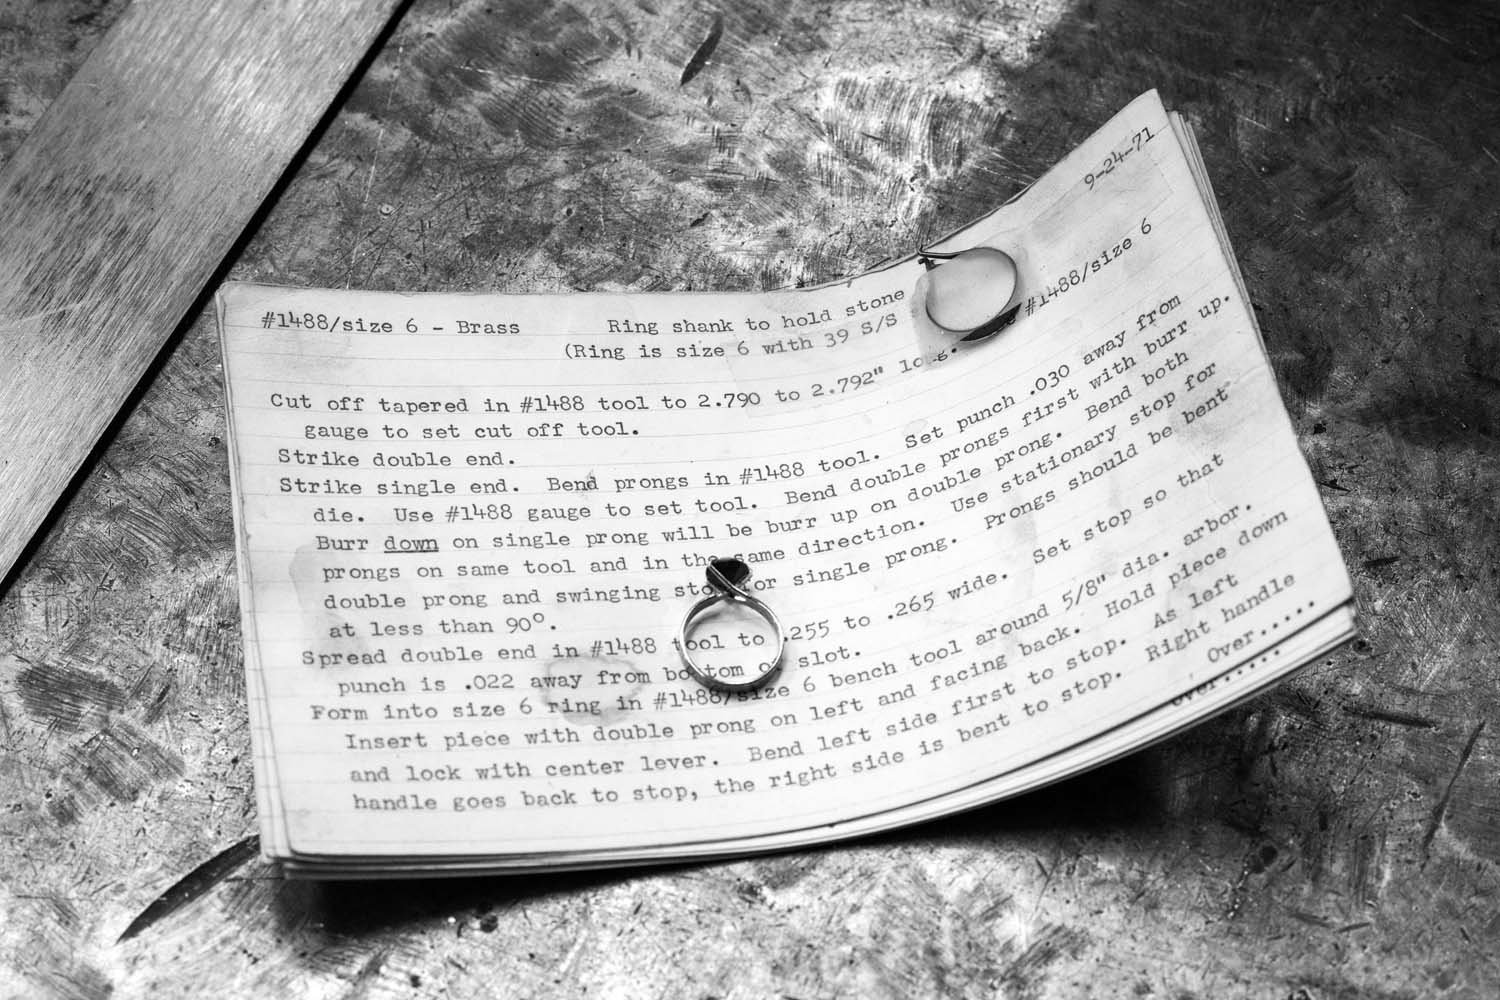 9-24-71
#1488/size 6 - Brass Ring shank to hold stone
(Ring is size 6 with 39 S/S
Cut off tapered in #1488 tool to 2.790 to 2.792" long. #1488/size 6
gauge to set cut off tool.
Strike double end.
Strike single end. Bend prongs in #1488 tool. Set punch .030 away from
die. Use #1488 gauge to set tool. Bend double prongs first with burr up.
Burr down on single prong will be burr up on double prong. Bend both
prongs on same tool and in the same direction. Use stationary stop for
double prong and swinging stop for single prong. Prongs should be bent
at less than 90°.
Spread double end in #1488 tool to .255 to .265 wide. Set stop so that
punch is .022 away from bottom of slot.
Form into size 6 ring in #1488/size 6 bench tool around 5/8" dia. arbor.
Insert piece with double prong on left and facing back. Hold piece down
and lock with center lever. Bend left side first to stop. As left
handle goes back to stop, the right side is bent to stop. Right handle
Over.....
Over.....